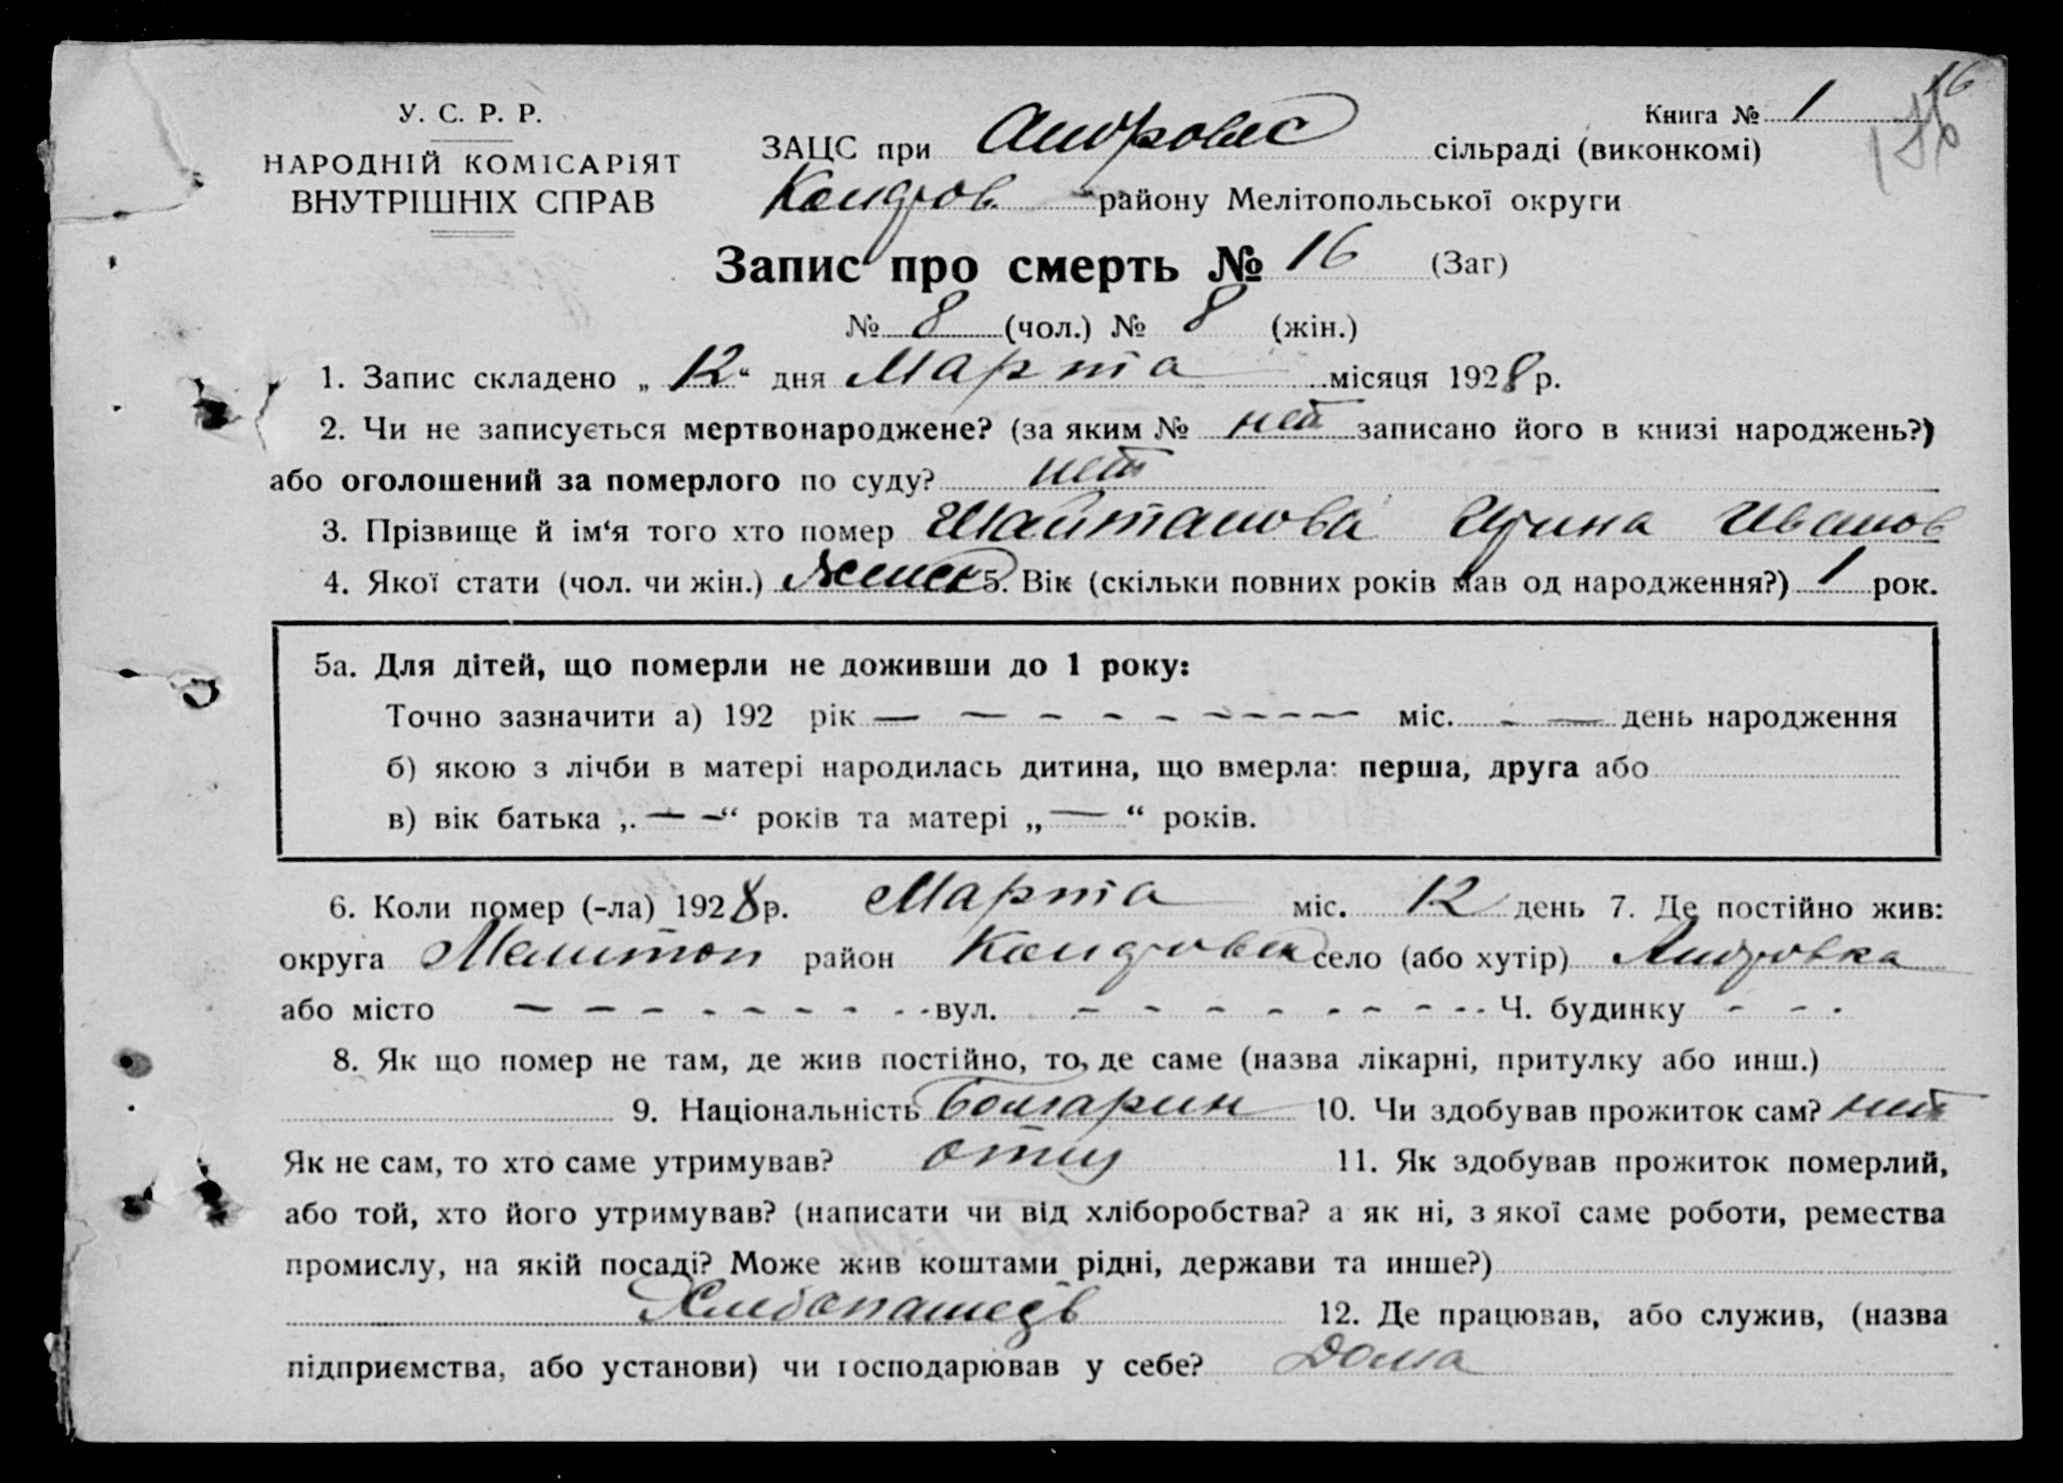 16
У. С. Р. Р.
Книга № 1
НАРОДНІЙ КОМІСАРІЯТ
ВНУТРІШНІХ СПРАВ
ЗАЦС при Андровс сільраді (виконкомі)
району Мелітопольської округи
Запис про смерть № 16 (Заг)
№ 8 (чол.) № 8 (жін.)
1. Запис складено „ 12 “ дня Марта місяця 1928 р.
2. Чи не записується мертвонароджене? (за яким № нет записано його в книзі народжень?)
або оголошений за померлого по суду? нет
3. Прізвище й ім‘я того хто помер Шайтанова Ирина Иванов
4. Якої стати (чол. чи жін.) женск 5. Вік (скільки повних років мав од народження?) 1 рок.
5а. Для дітей, що померли не доживши до 1 року:
Точно зазначити а) 192 рік — — — — — — — — — міс. — — день народження
б) якою з лічби в матері народилась дитина, що вмерла: перша, друга або
в) вік батька „ — — “ років та матері „ — “ років.
6. Коли помер (-ла) 1928 р. Марта міс. 12 день 7. Де постійно жив:
округа Мелитоп район село (або хутір) Андровка
або місто — — — — — — — — вул. — — — — — — — — Ч. будинку — — —
8. Як що помер не там, де жив постійно, то, де саме (назва лікарні, притулку або инш.)
9. Національність Болгарин 10. Чи здобував прожиток сам? нет
Як не сам, то хто саме утримував? отец 11. Як здобував прожиток померлий,
або той, хто його утримував? (написати чи від хліборобства? а як ні, з якої саме роботи, ремества
промислу, на якій посаді? Може жив коштами рідні, держави та инше?)
Хлебопашец 12. Де працював, або служив, (назва
підприємства, або установи) чи господарював у себе? Дома